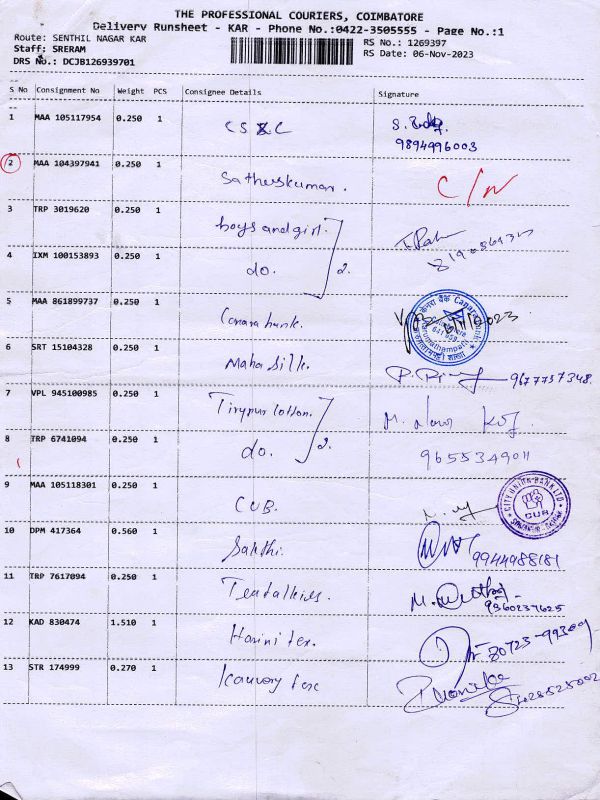 THE PROFESSIONAL COURIERS, COIMBATORE
Delivery Runsheet - KAR - Phone No.:0422-3505555 - Page No.:1
Route: SENTHIL NAGAR KAR
RS No.: 1269397
Staff: SRERAM
RS Date: 06-Nov-2023
DRS No.: DCJB126939701
S No Consignment No Weight PCS Consignee Details Signature
1 MAA 105117954 0.250 1 CS & C
9894996003
2 MAA 104397941 0.250 1 C/N
3 TRP 3019620 0.250 1 boys and girl.
4 IXM 100153893 0.250 1 do. 2.
5 MAA 861899737 0.250 1 Canara bank.
6 SRT 15104328 0.250 1 Maha Silk.
7 VPL 945100985 0.250 1 Tirupur Cotton.
8 TRP 6741094 0.250 1 do. 2. 9655349011
9 MAA 105118301 0.250 1 CUB.
CITY UNION BANK LTD
CUB
10 DPM 417364 0.560 1 Sakthi. 9944988181
11 TRP 7617094 0.250 1 9360237625
12 KAD 830474 1.510 1 Harini tex. 80723-99309
13 STR 174999 0.270 1